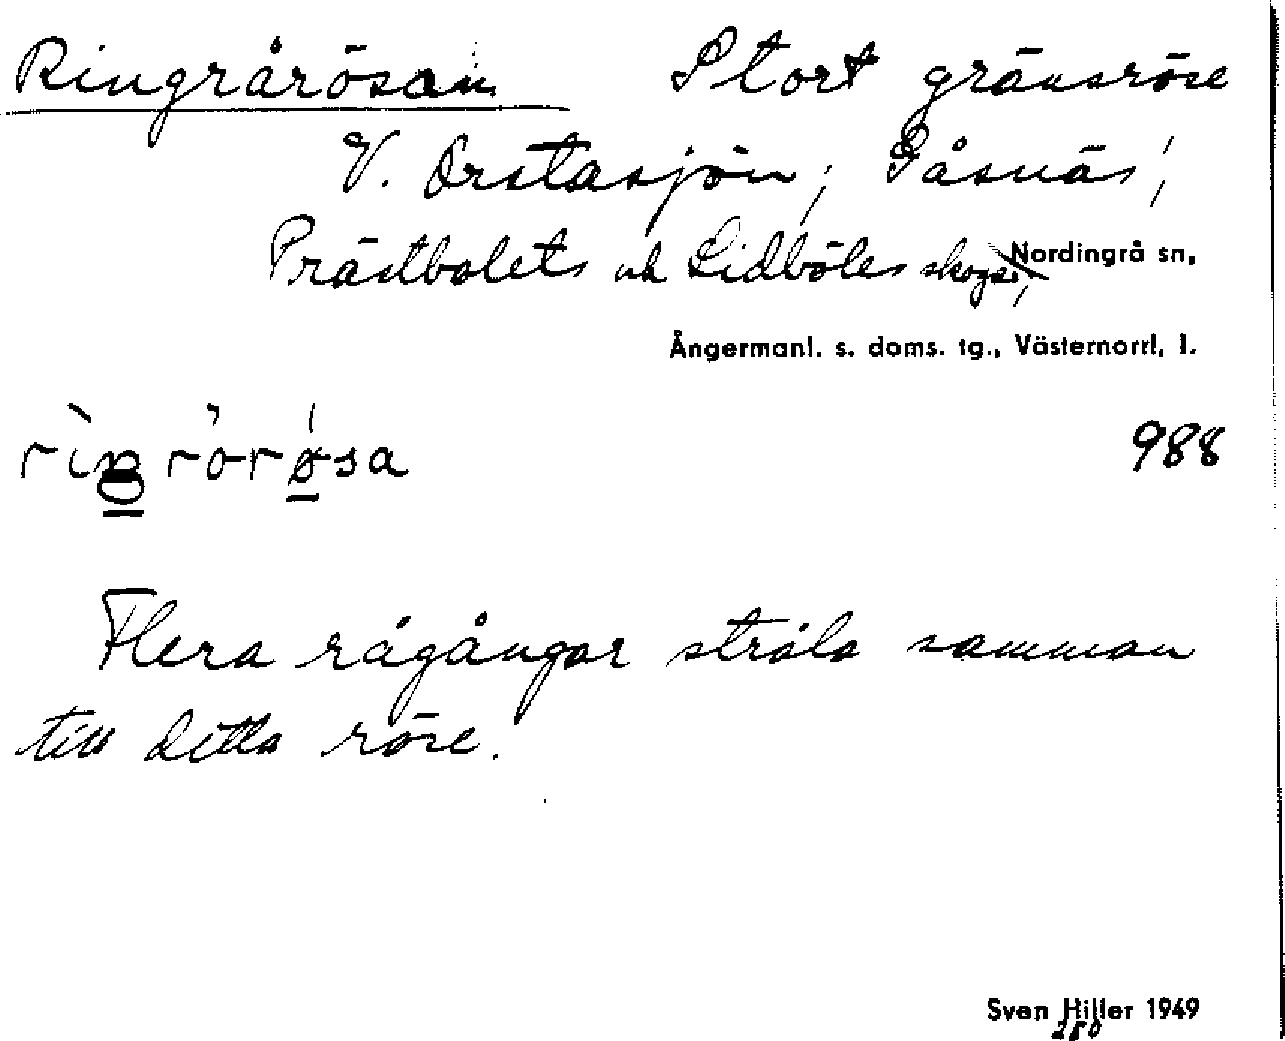 Ringrårösan Stort gränsröse
V. Orstasjön, Gåsnäs,
Prästbolets och Lidböles skogs, Nordingrå sn,
Ångermanl. s. doms. tg., Västernorrl. l.
988
Flera rågångar stråla samman
till detta röse.
Sven Hiller 1949
280